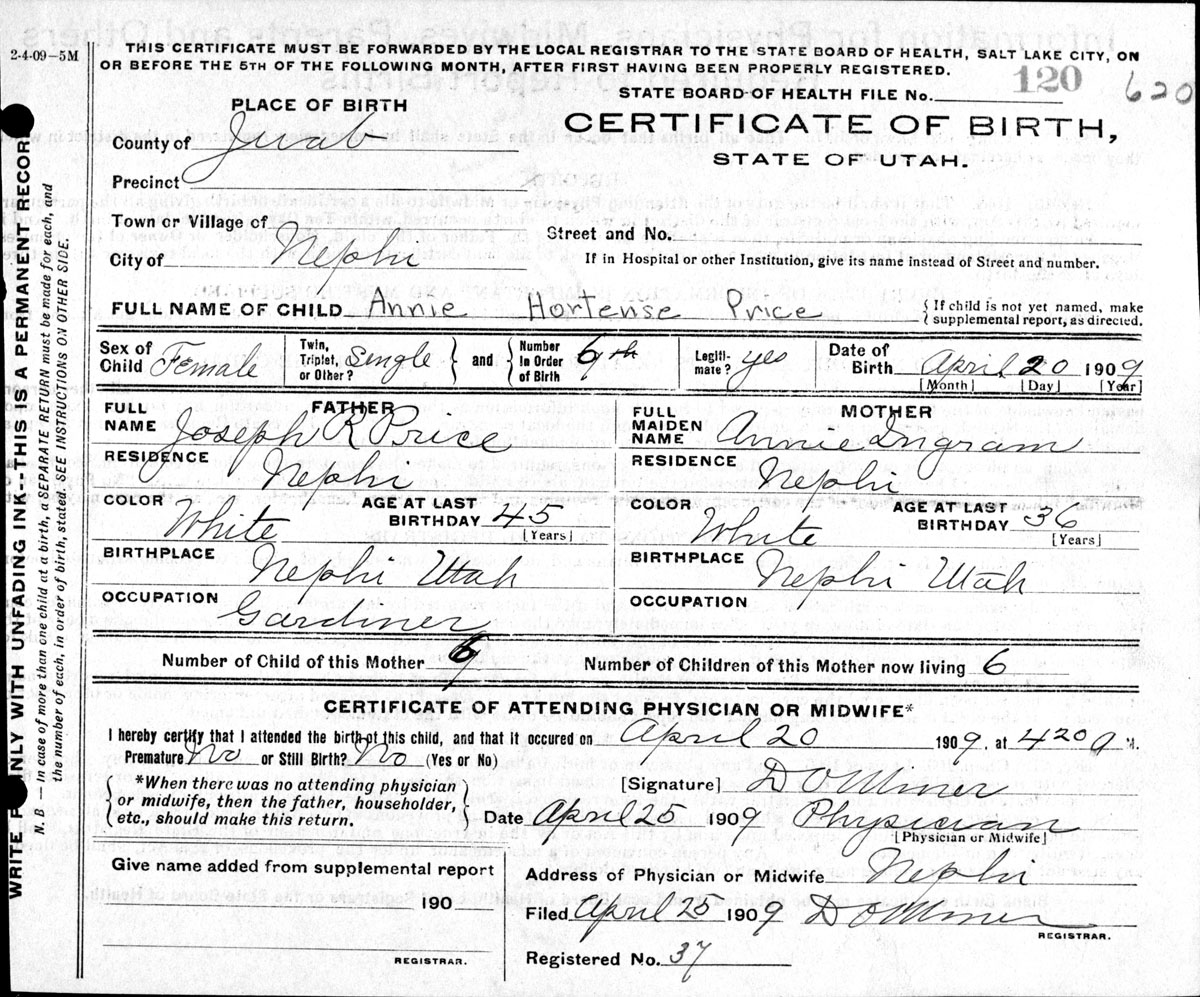 2-4-09—5M
THIS CERTIFICATE MUST BE FORWARDED BY THE LOCAL REGISTRAR TO THE STATE BOARD OF HEALTH, SALT LAKE CITY, ON
OR BEFORE THE 5TH OF THE FOLLOWING MONTH, AFTER FIRST HAVING BEEN PROPERLY REGISTERED.
STATE BOARD OF HEALTH FILE No. 120 620
PLACE OF BIRTH
CERTIFICATE OF BIRTH,
STATE OF UTAH.
County of Juab
Precinct
Town or Village of
Street and No.
City of Nephi
If in Hospital or other Institution, give its name instead of Street and number.
FULL NAME OF CHILD Annie Hortense Price
{ If child is not yet named, make
{ supplemental report, as directed.
Sex of Child Female
Twin, Triplet, or Other? Single } and { Number In Order of Birth 6th
Legiti- mate? yes
Date of Birth April 20 1909
[Month] [Day] [Year]
FATHER
FULL NAME Joseph R Price
RESIDENCE Nephi
COLOR White
AGE AT LAST BIRTHDAY 45
[Years]
BIRTHPLACE Nephi Utah
OCCUPATION Gardiner
MOTHER
FULL MAIDEN NAME Annie Ingram
RESIDENCE Nephi
COLOR White
AGE AT LAST BIRTHDAY 36
[Years]
BIRTHPLACE Nephi Utah
OCCUPATION
Number of Child of this Mother
Number of Children of this Mother now living 6
CERTIFICATE OF ATTENDING PHYSICIAN OR MIDWIFE*
I hereby certify that I attended the birth of this child, and that it occured on April 20 1909, at 420 a M.
Premature No or Still Birth? No (Yes or No)
{ *When there was no attending physician
or midwife, then the father, householder,
etc., should make this return. }
[Signature]
Date April 20 1909 Physician
[Physician or Midwife]
Give name added from supplemental report
190
REGISTRAR.
Address of Physician or Midwife Nephi
Filed April 25 1909
REGISTRAR.
Registered No. 37
WRITE ONLY WITH UNFADING INK--THIS IS A PERMANENT RECORD
N. B.—In case of more than one child at a birth, a SEPARATE RETURN must be made for each, and
the number of each, in order of birth, stated. SEE INSTRUCTIONS ON OTHER SIDE.